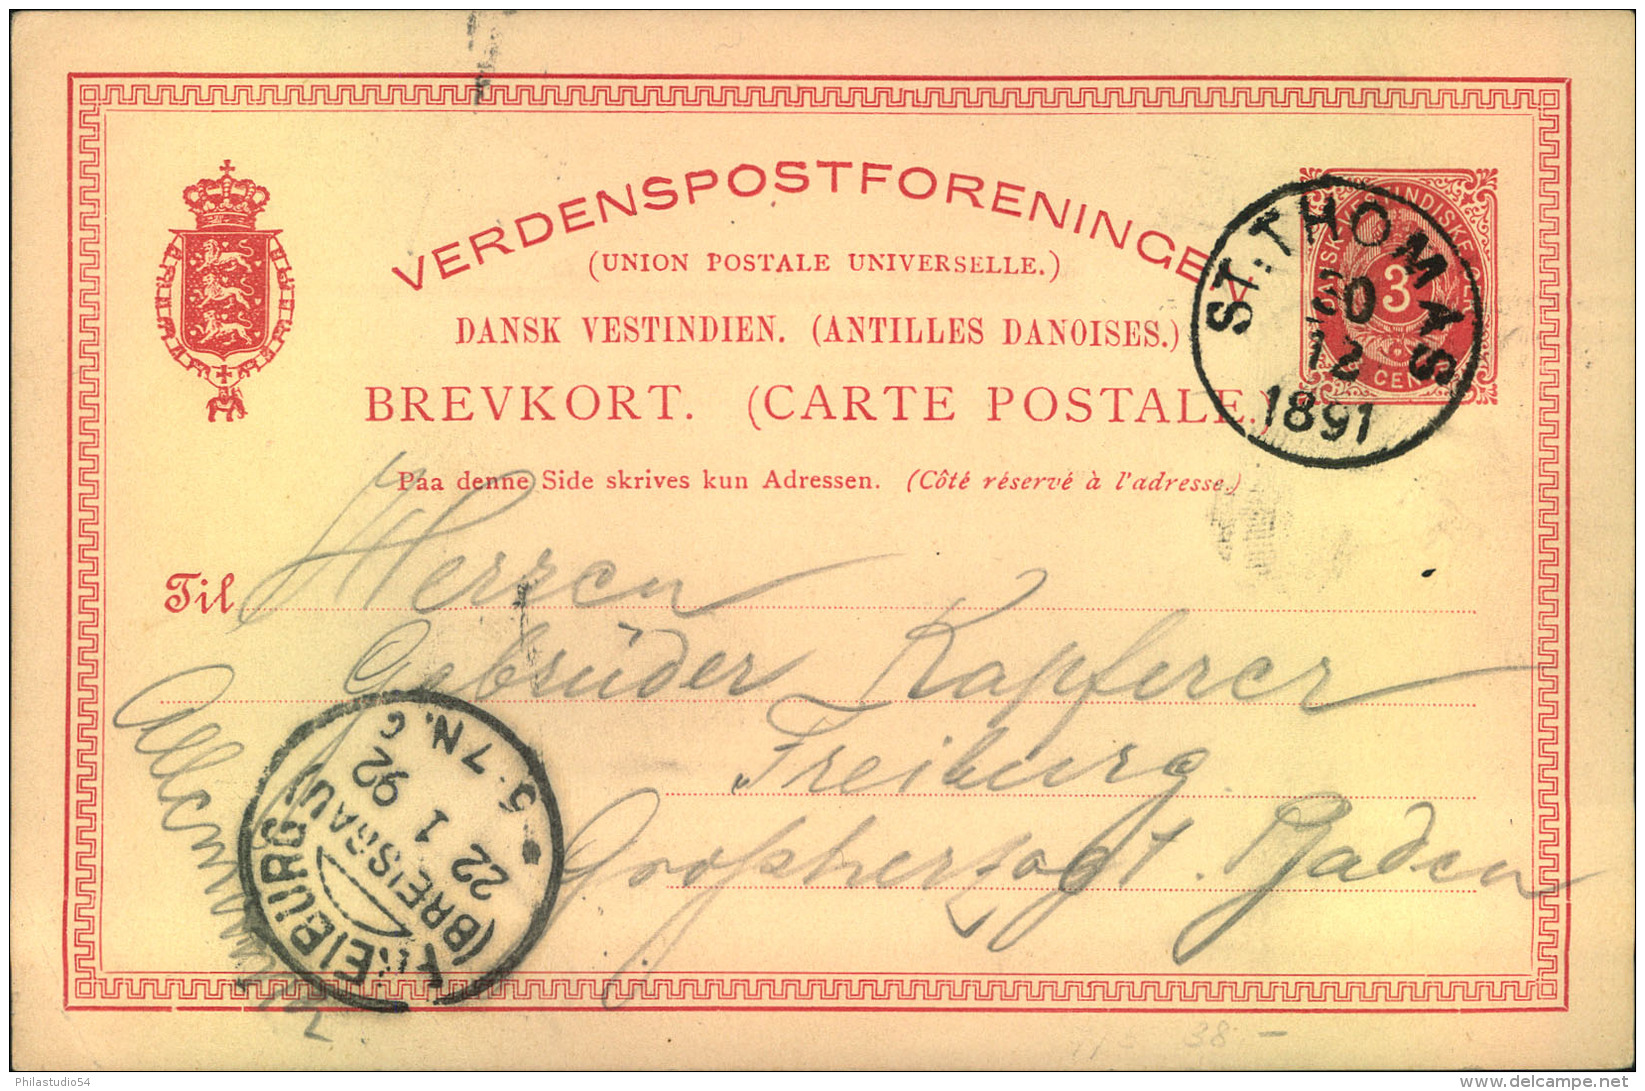 VERDENSPOSTFORENINGEN
(UNION POSTALE UNIVERSELLE.)
DANSK VESTINDIEN. (ANTILLES DANOISES.)
BREVKORT. (CARTE POSTALE.)
Paa denne Side skrives kun Adressen. (Côté réservé à l'adresse.)
3
CENT
ST. THOMAS
12
1891
Til Herren
Gebrüder Kapferer
Freiburg
Grossherzogt. Baden
Allemagne
FREIBURG
(BREISGAU)
22
1
92
5-7 N.
38.-
Philastudio54
delcampe.net